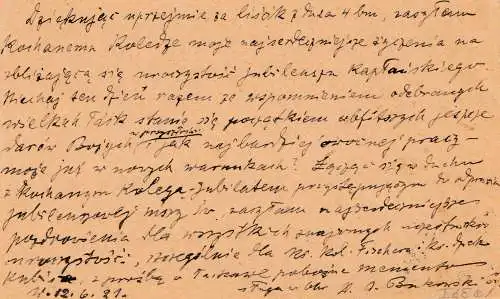 Dziękując uprzejmie za liścik z dnia 4 bm, zasyłam
Kochanemu Koledze moje najserdeczniejsze życzenia na
zbliżającą się uroczystość jubileusza kapłańskiego.
Niechaj ten dzień razem ze wspomnieniem odebranych
wielkich łask stanie się początkiem obfitszych jeszcze
w przyszłości
darów Bożych i jak najbardziej owocnej pracy
może już w nowych warunkach! Łącząc się w duchu
z Kochanym Kolegą-Jubilatem przystępującym do
jubileuszowej mszy św. zasyłam najserdeczniejsze
pozdrowienia dla wszystkich znajomych uczestników
uroczystości, szczególnie dla Ks. Kol. Fischera, ks.
z prośbą o łaskawe pobożne memento
12.6.21. sługa w Chr.